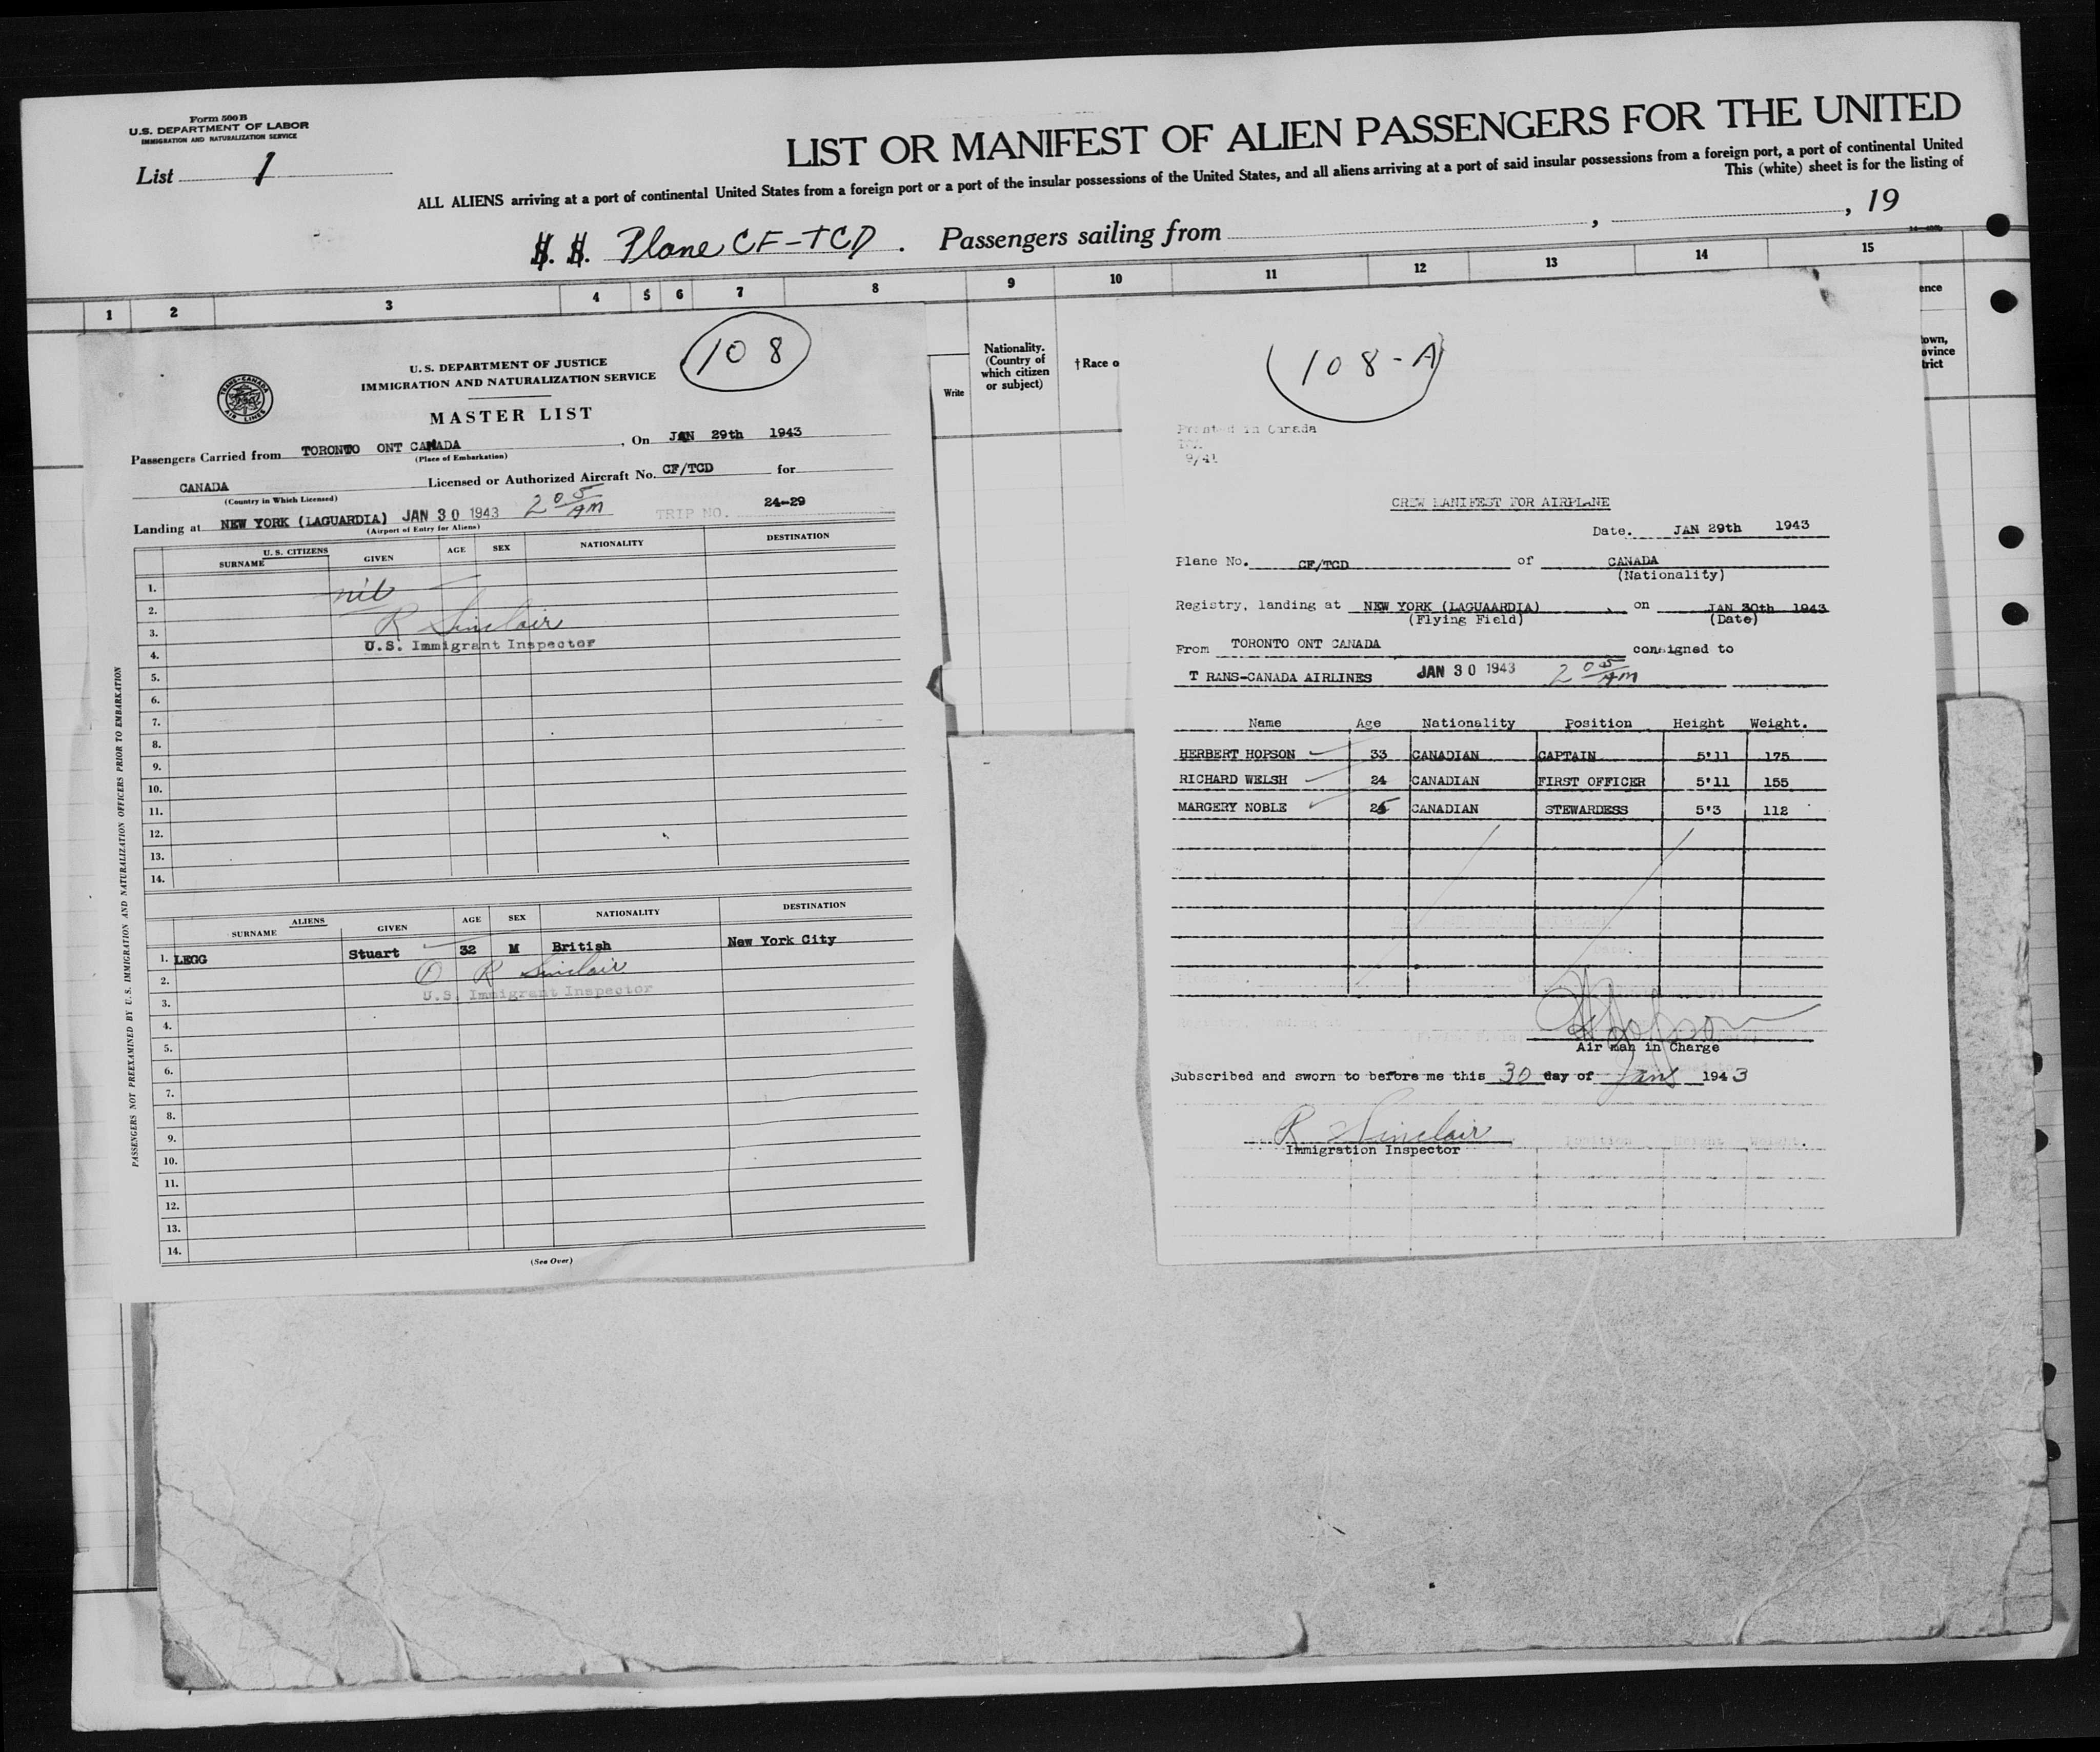 Form 500 B
U.S. DEPARTMENT OF LABOR
IMMIGRATION AND NATURALIZATION SERVICE
List 1
LIST OR MANIFEST OF ALIEN PASSENGERS FOR THE UNITED
ALL ALIENS arriving at a port of continental United States from a foreign port or a port of the insular possessions of the United States, and all aliens arriving at a port of said insular possessions from a foreign port, a port of continental United
This (white) sheet is for the listing of
S. S. Plane CF-TCD . Passengers sailing from , , 19
1 2 3 4 5 6 7 8 9 10 11 12 13 14 15
Write
Nationality. (Country of which citizen or subject)
† Race o
ence
own,
ovince
trict
108
TRANS-CANADA AIR LINES
U. S. DEPARTMENT OF JUSTICE
IMMIGRATION AND NATURALIZATION SERVICE
MASTER LIST
Passengers Carried from TORONTO ONT CANADA , On JAN 29th 1943
(Place of Embarkation)
CANADA Licensed or Authorized Aircraft No. CF/TCD for
(Country in Which Licensed)
Landing at NEW YORK (LAGUARDIA) JAN 30 1943 2 05 AM TRIP NO. 24-29
(Airport of Entry for Aliens)
U. S. CITIZENS
SURNAME GIVEN AGE SEX NATIONALITY DESTINATION
1.
nil
2.
R Sinclair
3.
U.S. Immigrant Inspector
4.
5.
6.
7.
8.
9.
10.
11.
12.
13.
14.
ALIENS
SURNAME GIVEN AGE SEX NATIONALITY DESTINATION
1. LEGG Stuart 32 M British New York City
2. R Sinclair
3. U.S. Immigrant Inspector
4.
5.
6.
7.
8.
9.
10.
11.
12.
13.
14.
(See Over)
PASSENGERS NOT PREEXAMINED BY U. S. IMMIGRATION AND NATURALIZATION OFFICERS PRIOR TO EMBARKATION
108-A
Printed in Canada
9/41
CREW MANIFEST FOR AIRPLANE
Date. JAN 29th 1943
Plane No. CF/TCD of CANADA
(Nationality)
Registry, landing at NEW YORK (LAGUAARDIA) , on JAN 30th 1943
(Flying Field) (Date)
From TORONTO ONT CANADA consigned to
T RANS-CANADA AIRLINES JAN 30 1943 2 05 AM
Name Age Nationality Position Height Weight.
HERBERT HOPSON 33 CANADIAN CAPTAIN 5'11 175
RICHARD WELSH 24 CANADIAN FIRST OFFICER 5'11 155
MARGERY NOBLE 25 CANADIAN STEWARDESS 5'3 112
H Hopson
Air man in Charge
Subscribed and sworn to before me this 30 day of Jany 1943
R Sinclair
Immigration Inspector
Position Height Weight.